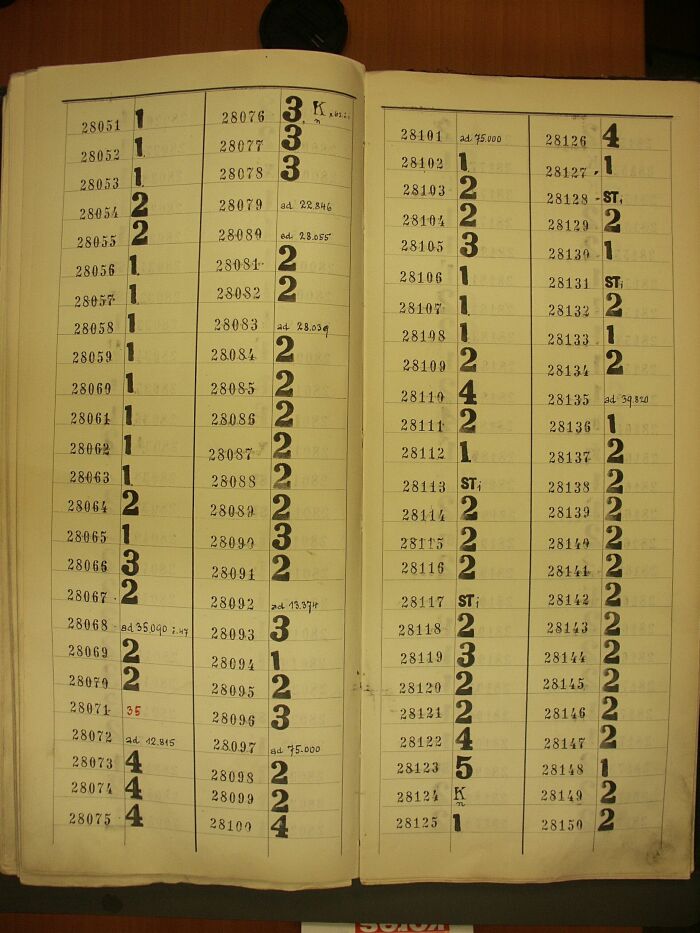 28051 1
28052 1
28053 1
28054 2
28055 2
28056 1
28057 1
28058 1
28059 1
28060 1
28061 1
28062 1
28063 1
28064 2
28065 1
28066 3
28067 2
28068 ad 35.090 i.47
28069 2
28070 2
28071 35
28072 ad 12.815
28073 4
28074 4
28075 4
28076 3 K n
28077 3
28078 3
28079 ad 22.846
28080 ad 28.055
28081 2
28082 2
28083 ad 28.039
28084 2
28085 2
28086 2
28087 2
28088 2
28089 2
28090 3
28091 2
28092 ad 13.374
28093 3
28094 1
28095 2
28096 3
28097 ad 75.000
28098 2
28099 2
28100 4
28101 ad 75.000
28102 1
28103 2
28104 2
28105 3
28106 1
28107 1
28108 1
28109 2
28110 4
28111 2
28112 1
28113 STi
28114 2
28115 2
28116 2
28117 STi
28118 2
28119 3
28120 2
28121 2
28122 4
28123 5
28124 K n
28125 1
28126 4
28127 1
28128 STi
28129 2
28130 1
28131 STi
28132 2
28133 1
28134 2
28135 ad 39.820
28136 1
28137 2
28138 2
28139 2
28140 2
28141 2
28142 2
28143 2
28144 2
28145 2
28146 2
28147 2
28148 1
28149 2
28150 2